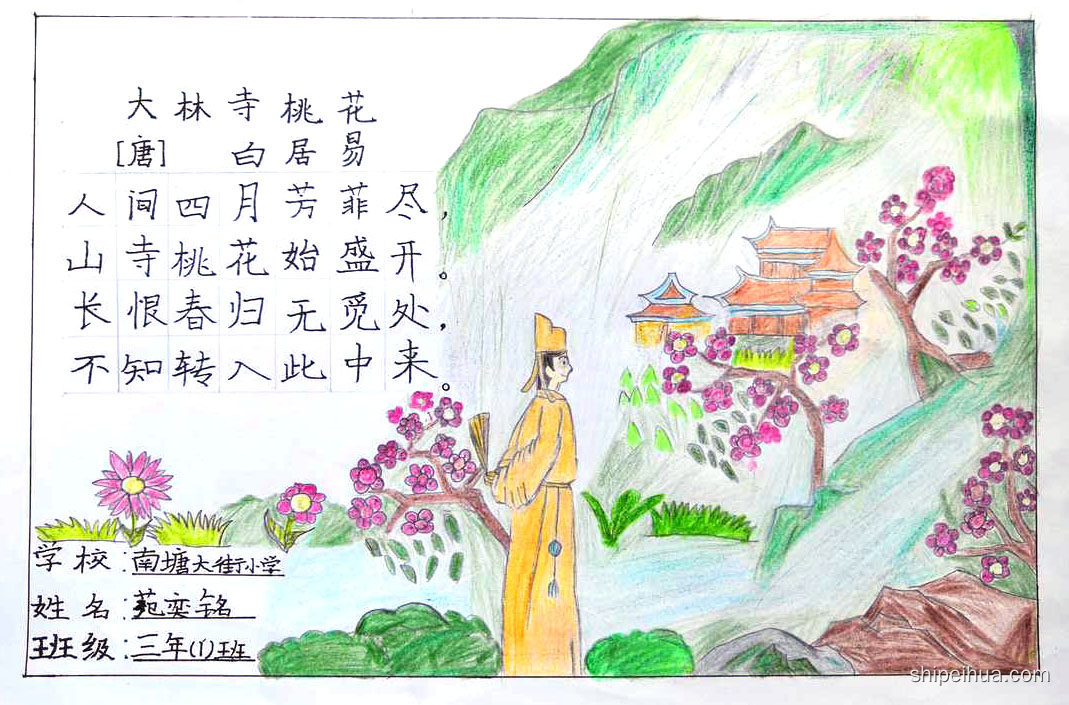 大林寺桃花
[唐] 白居易
人间四月芳菲尽，
山寺桃花始盛开。
长恨春归无觅处，
不知转入此中来。
学校：南塘大街小学
姓名：苑奕铭
班级：三年(1)班
shipeihua.com